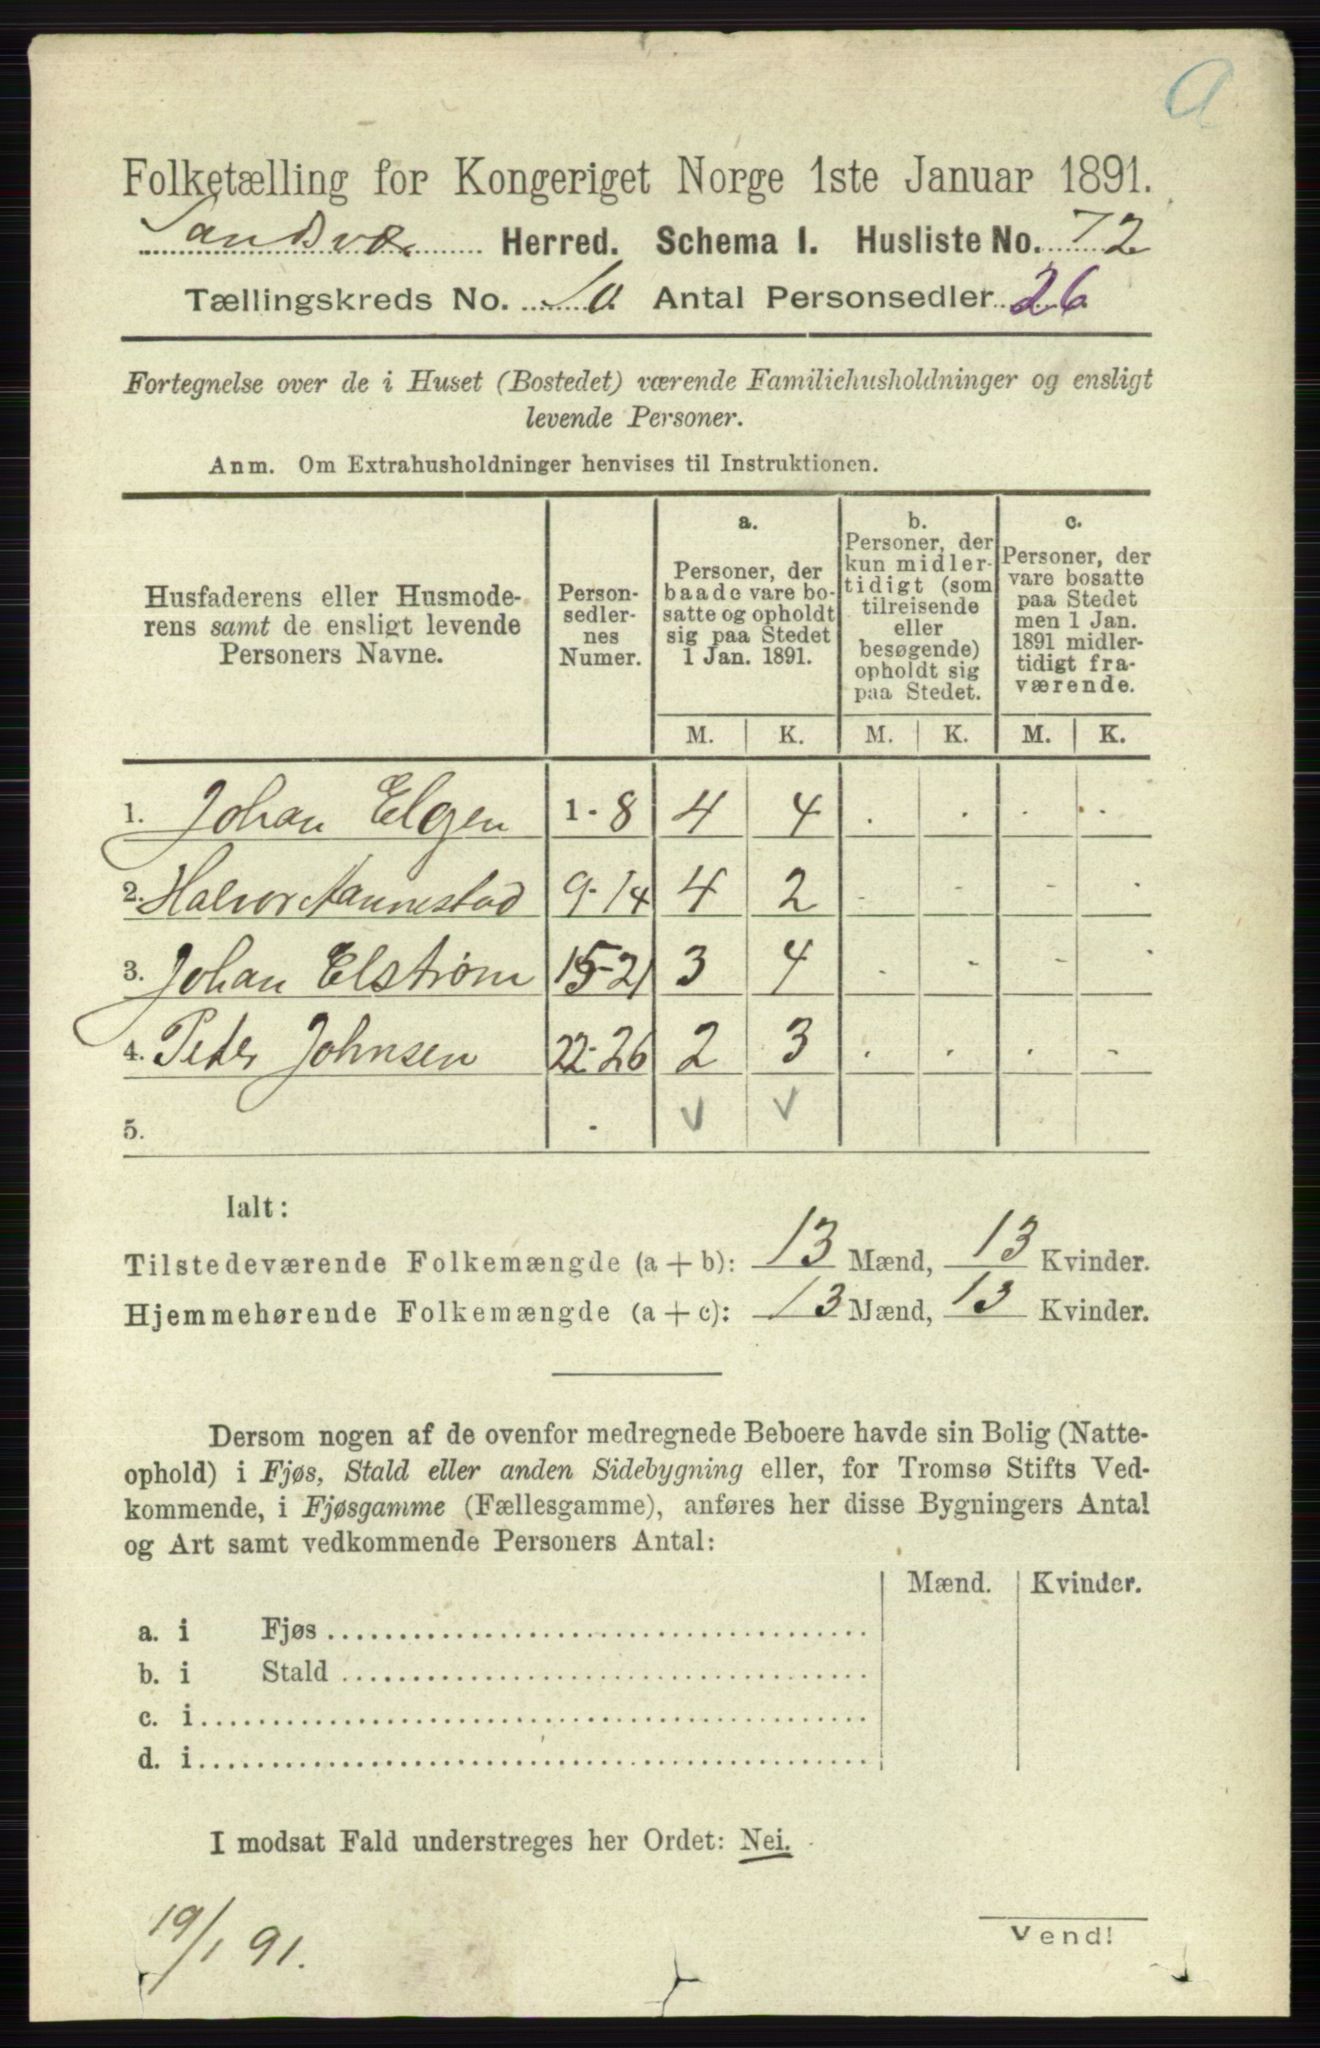 a
Folketælling for Kongeriget Norge 1ste Januar 1891.
Sandsvær Herred. Schema I. Husliste No. 72
Tællingskreds No. 10. Antal Personsedler 26
Fortegnelse over de i Huset (Bostedet) værende Familiehusholdninger og ensligt
levende Personer.
Anm. Om Extrahusholdninger henvises til Instruktionen.
Husfaderens eller Husmode-
rens samt de ensligt levende
Personers Navne.
Person-
sedler-
nes
Numer.
a.
Personer, der
baade vare bo-
satte og opholdt
sig paa Stedet
1 Jan. 1891.
b.
Personer, der
kun midler-
tidigt (som
tilreisende
eller
besøgende)
opholdt sig
paa Stedet.
c.
Personer, der
vare bosatte
paa Stedet
men 1 Jan.
1891 midler-
tidigt fra-
værende.
M. K. M. K. M. K.
1. Johan Elgen 1-8 4 4 . . . .
2. Halvor Nannestad 9-14 4 2 - - - -
3. Johan Elstrøm 15-21 3 4 - - - -
4. Peder Johnsen 22-26 2 3 . . . -
5. - ✓ ✓
Ialt:
Tilstedeværende Folkemængde (a + b): 13 Mænd, 13 Kvinder.
Hjemmehørende Folkemængde (a + c): 13 Mænd, 13 Kvinder.
Dersom nogen af de ovenfor medregnede Beboere havde sin Bolig (Natte-
ophold) i Fjøs, Stald eller anden Sidebygning eller, for Tromsø Stifts Ved-
kommende, i Fjøsgamme (Fællesgamme), anføres her disse Bygningers Antal
og Art samt vedkommende Personers Antal:
Mænd. Kvinder.
a. i Fjøs
b. i Stald
c. i
d. i
I modsat Fald understreges her Ordet: Nei.
19/1 91.
Vend!